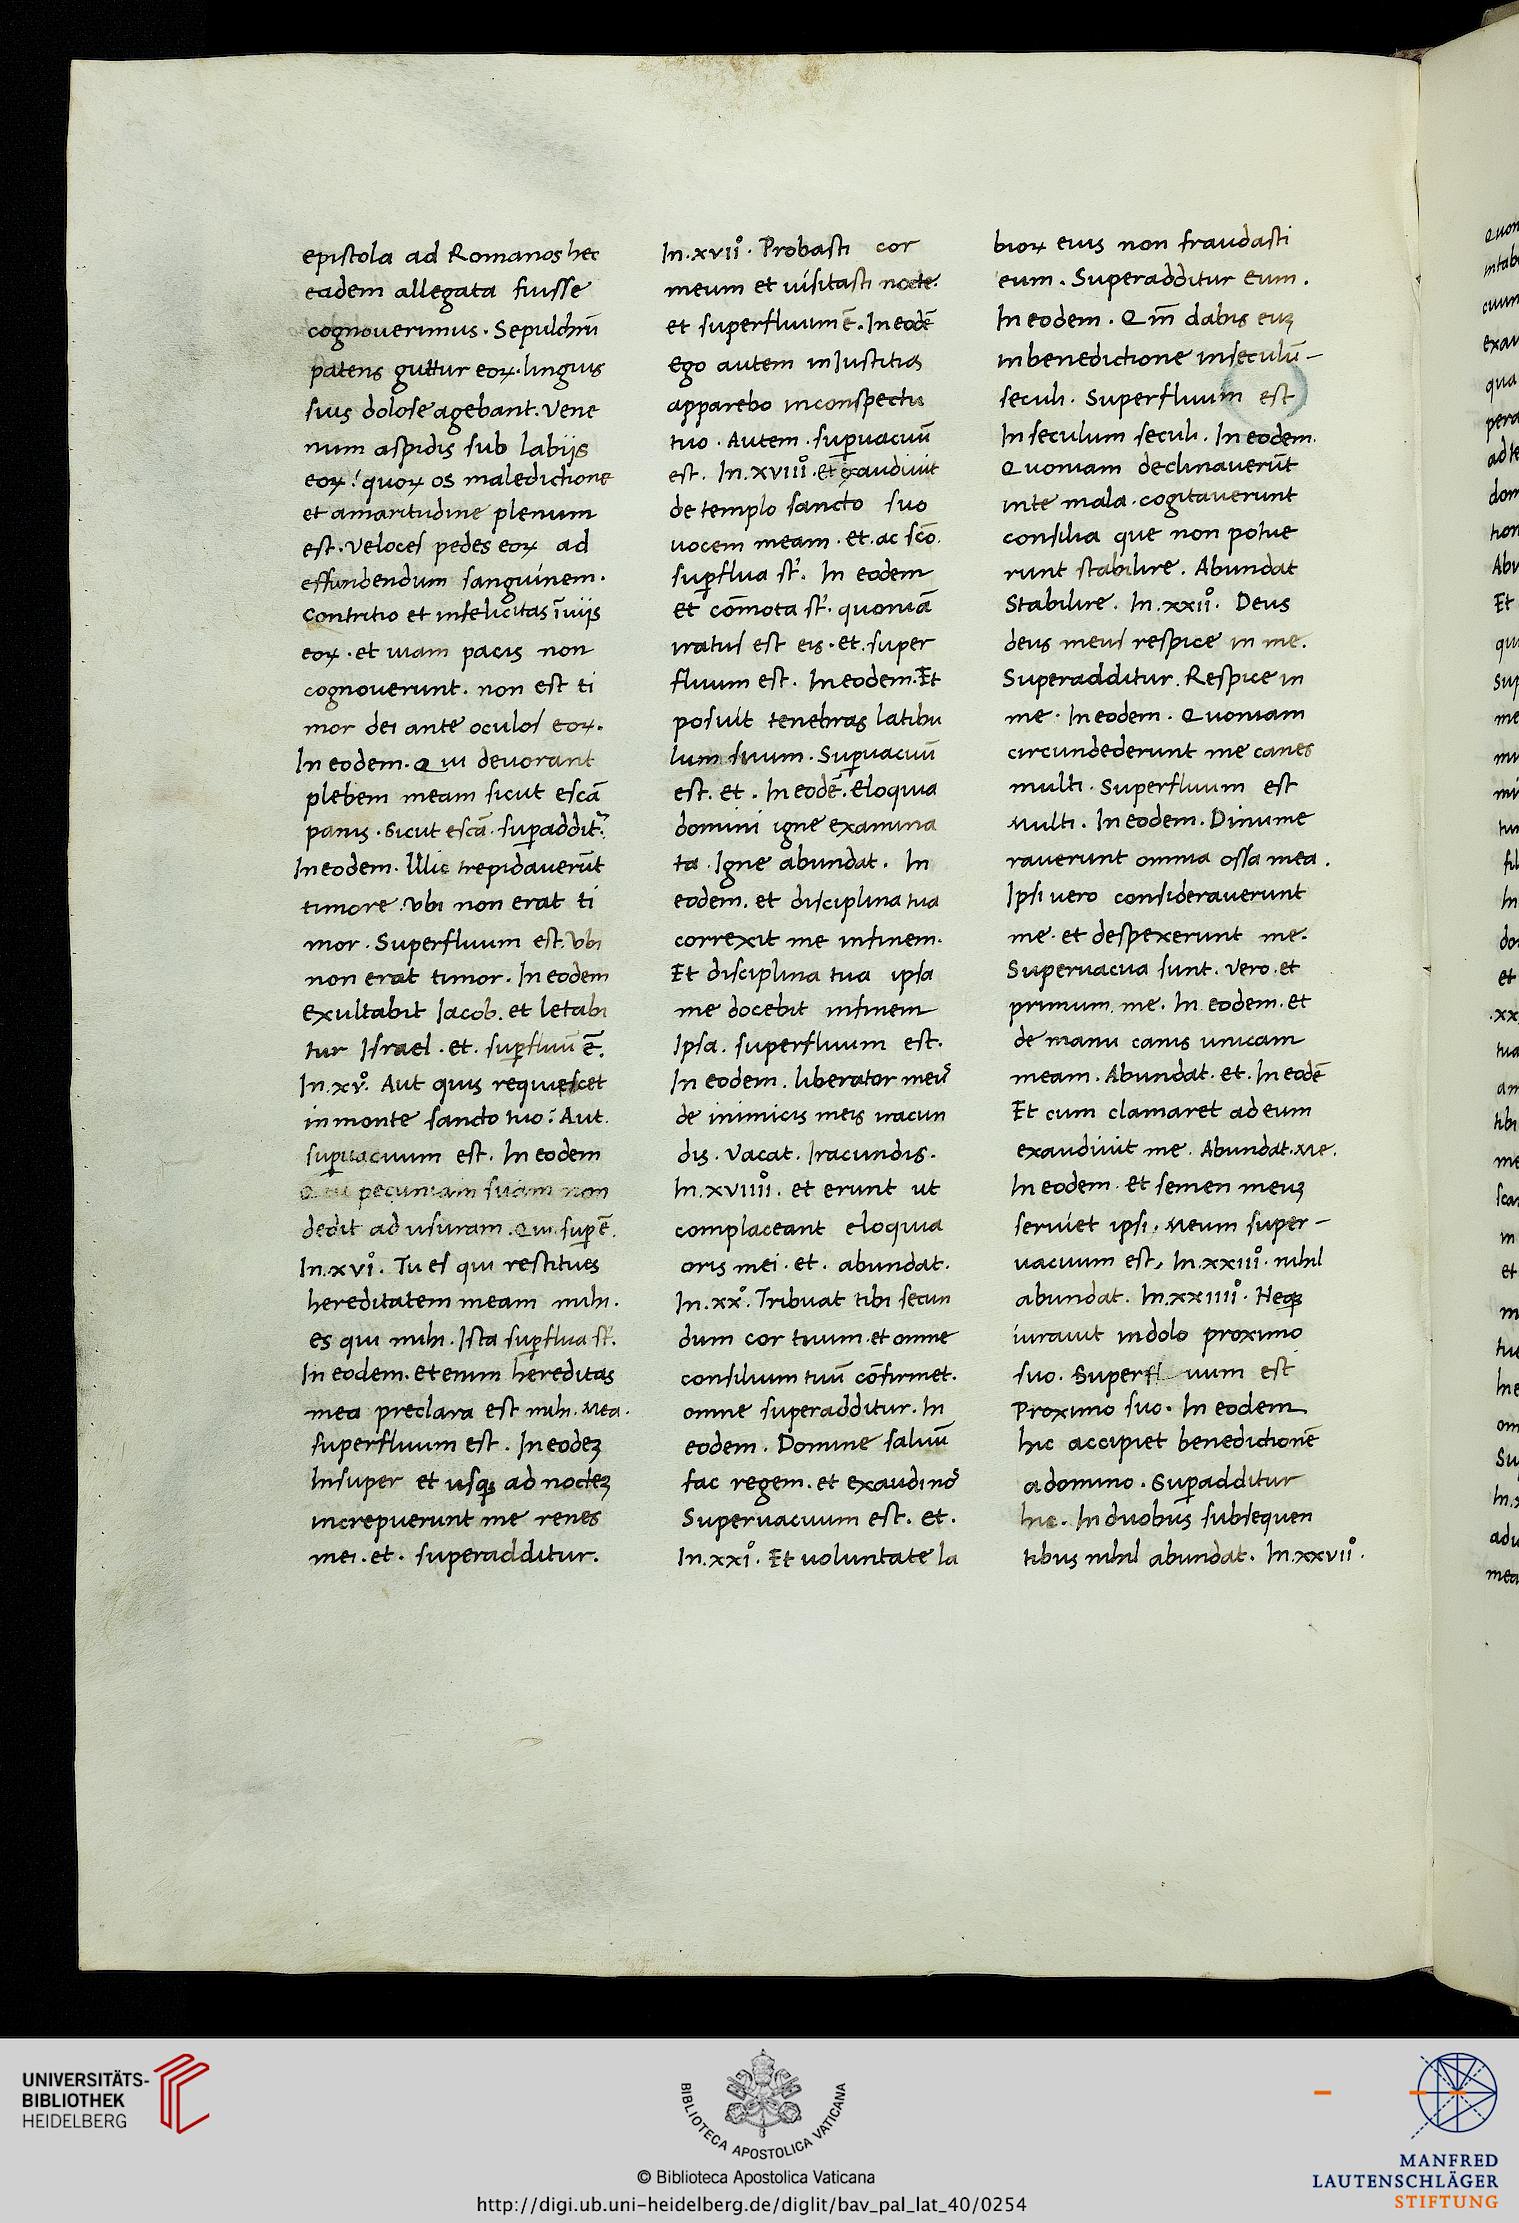 epistola ad Romanos hec
eadem allegata fuisse
cognouerimus. Sepulchrū
patens guttur eoꝝ. linguis
suis dolose agebant. Vene
num aspidis sub labijs
eoꝝ: quoꝝ os maledictione
et amaritudine plenum
est. veloces pedes eoꝝ ad
effundendum sanguinem.
Contritio et infelicitas ī uijs
eoꝝ. et uiam pacis non
cognouerunt. non est ti
mor dei ante oculos eoꝝ.
In eodem. Qui deuorant
plebem meam sicut escā
panis. Sicut escā. suꝑaddit᷑.
In eodem. Illic trepidauerūt
timore. Vbi non erat ti
mor. Superfluum est. Vbi
non erat timor. In eodem
exultabit Jacob. et letabi
tur Israel. et. suꝑfluū ē.
In. xv°. Aut quis requiescet
in monte sancto tuo: Aut.
suꝑuacuum est. In eodem
Qui pecuniam suam non
dedit ad usuram. Qui. suꝑ ē.
In. xvi°. Tu es qui restitues
hereditatem meam mihi.
es qui mihi. Ista suꝑflua st̄.
In eodem. Etenim hereditas
mea preclara est mihi. Mea.
superfluum est. In eodeꝫ
Insuper et usqꝫ ad nocteꝫ
increpuerunt me renes
mei. et. superadditur.
In. xvii°. Probasti cor
meum et uisitasti nocte.
et superfluum ē. In eodē
ego autem in Justitia
apparebo in conspectu
tuo. Autem. suꝑuacuū
est. In. xviii°. et exaudiuit
de templo sancto suo
uocem meam. et. ac sc̄o.
suꝑflua st̄. In eodem
et cōmota st̄. quoniā
iratus est eis. et. super
fluum est. In eodem. Et
posuit tenebras latibu
lum suum. Suꝑuacuū
est. et. In eodē. eloquia
domini igne examina
ta. Igne abundat. In
eodem. et disciplina tua
correxit me infinem.
Et disciplina tua ipsa
me docebit infinem
Ipsa. superfluum est.
In eodem. liberator meꝰ
de inimicis meis iracun
dis. Vacat. Iracundis.
In. xviiii°. et erunt ut
complaceant eloquia
oris mei. et. abundat.
In. xx°. Tribuat tibi secun
dum cor tuum. et omne
consilium tuū cōfirmet.
omne superadditur. In
eodem. Domine saluū
fac regem. et exaudi noꝰ
Superuacuum est. et.
In. xxi°. Et uoluntate la
bioꝝ eius non fraudasti
eum. Superadditur Eum.
In eodem. Qm̄ dabis euꝫ
in benedictione in seculū-
seculi. Superfluum est
In seculum seculi. In eodem.
Quoniam declinauerūt
in te mala. cogitauerunt
consilia que non potue
runt stabilire. Abundat
Stabilire. In. xxii°. Deus
deus meus respice in me.
Superadditur. Respice in
me. In eodem. Quoniam
circundederunt me canes
multi. Superfluum est
Multi. In eodem. Dinume
rauerunt omnia ossa mea.
Ipsi uero considerauerunt
me. et despexerunt me.
Superuacua sunt. Vero. et
primum. me. In eodem. et
de manu canis unicam
meam. Abundat. et. In eodē
Et cum clamaret ad eum
exaudiuit me. Abundat. Me.
In eodem. et semen meuꝫ
seruiet ipsi. Meum super-
uacuum est. In. xxiii°. nihil
abundat. In. xxiiii°. Neqꝫ
iurauit in dolo proximo
suo. Superfl uum est
Proximo suo. In eodem
hic accipiet benedictionē
a domino. Suꝑadditur
hic. In duobus subsequen
tibus nihil abundat. In. xxvii°.
UNIVERSITÄTS-
BIBLIOTHEK
HEIDELBERG
BIBLIOTECA APOSTOLICA VATICANA
© Biblioteca Apostolica Vaticana
http://digi.ub.uni-heidelberg.de/diglit/bav_pal_lat_40/0254
MANFRED
LAUTENSCHLÄGER
STIFTUNG